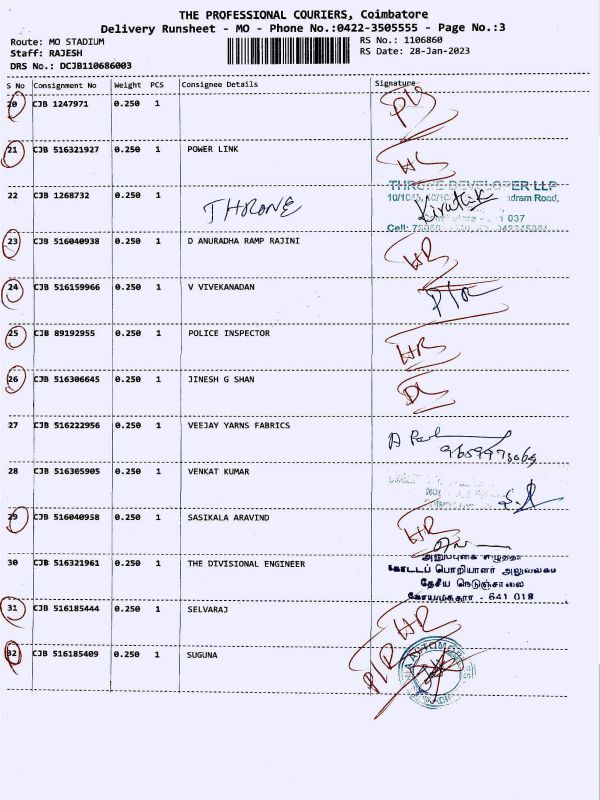 THE PROFESSIONAL COURIERS, Coimbatore
Delivery Runsheet - MO - Phone No.:0422-3505555 - Page No.:3
Route: MO STADIUM
Staff: RAJESH
DRS No.: DCJB110686003
RS No.: 1106860
RS Date: 28-Jan-2023
S No Consignment No Weight PCS Consignee Details Signature
20 CJB 1247971 0.250 1
21 CJB 516321927 0.250 1 POWER LINK
22 CJB 1268732 0.250 1 THRONE
DEVELOPER LLP
Road,
037
Cell:
23 CJB 516040938 0.250 1 D ANURADHA RAMP RAJINI HR
24 CJB 516159966 0.250 1 V VIVEKANADAN
25 CJB 89192955 0.250 1 POLICE INSPECTOR HR
26 CJB 516306645 0.250 1 JINESH G SHAN DL
27 CJB 516222956 0.250 1 VEEJAY YARNS FABRICS
28 CJB 516305905 0.250 1 VENKAT KUMAR
29 CJB 516040958 0.250 1 SASIKALA ARAVIND HR
30 CJB 516321961 0.250 1 THE DIVISIONAL ENGINEER
கோட்டப் பொறியாளர் அலுவலகம்
தேசிய நெடுஞ்சாலை
கோயமுத்தூர் - 641 018
31 CJB 516185444 0.250 1 SELVARAJ HR
32 CJB 516185409 0.250 1 SUGUNA